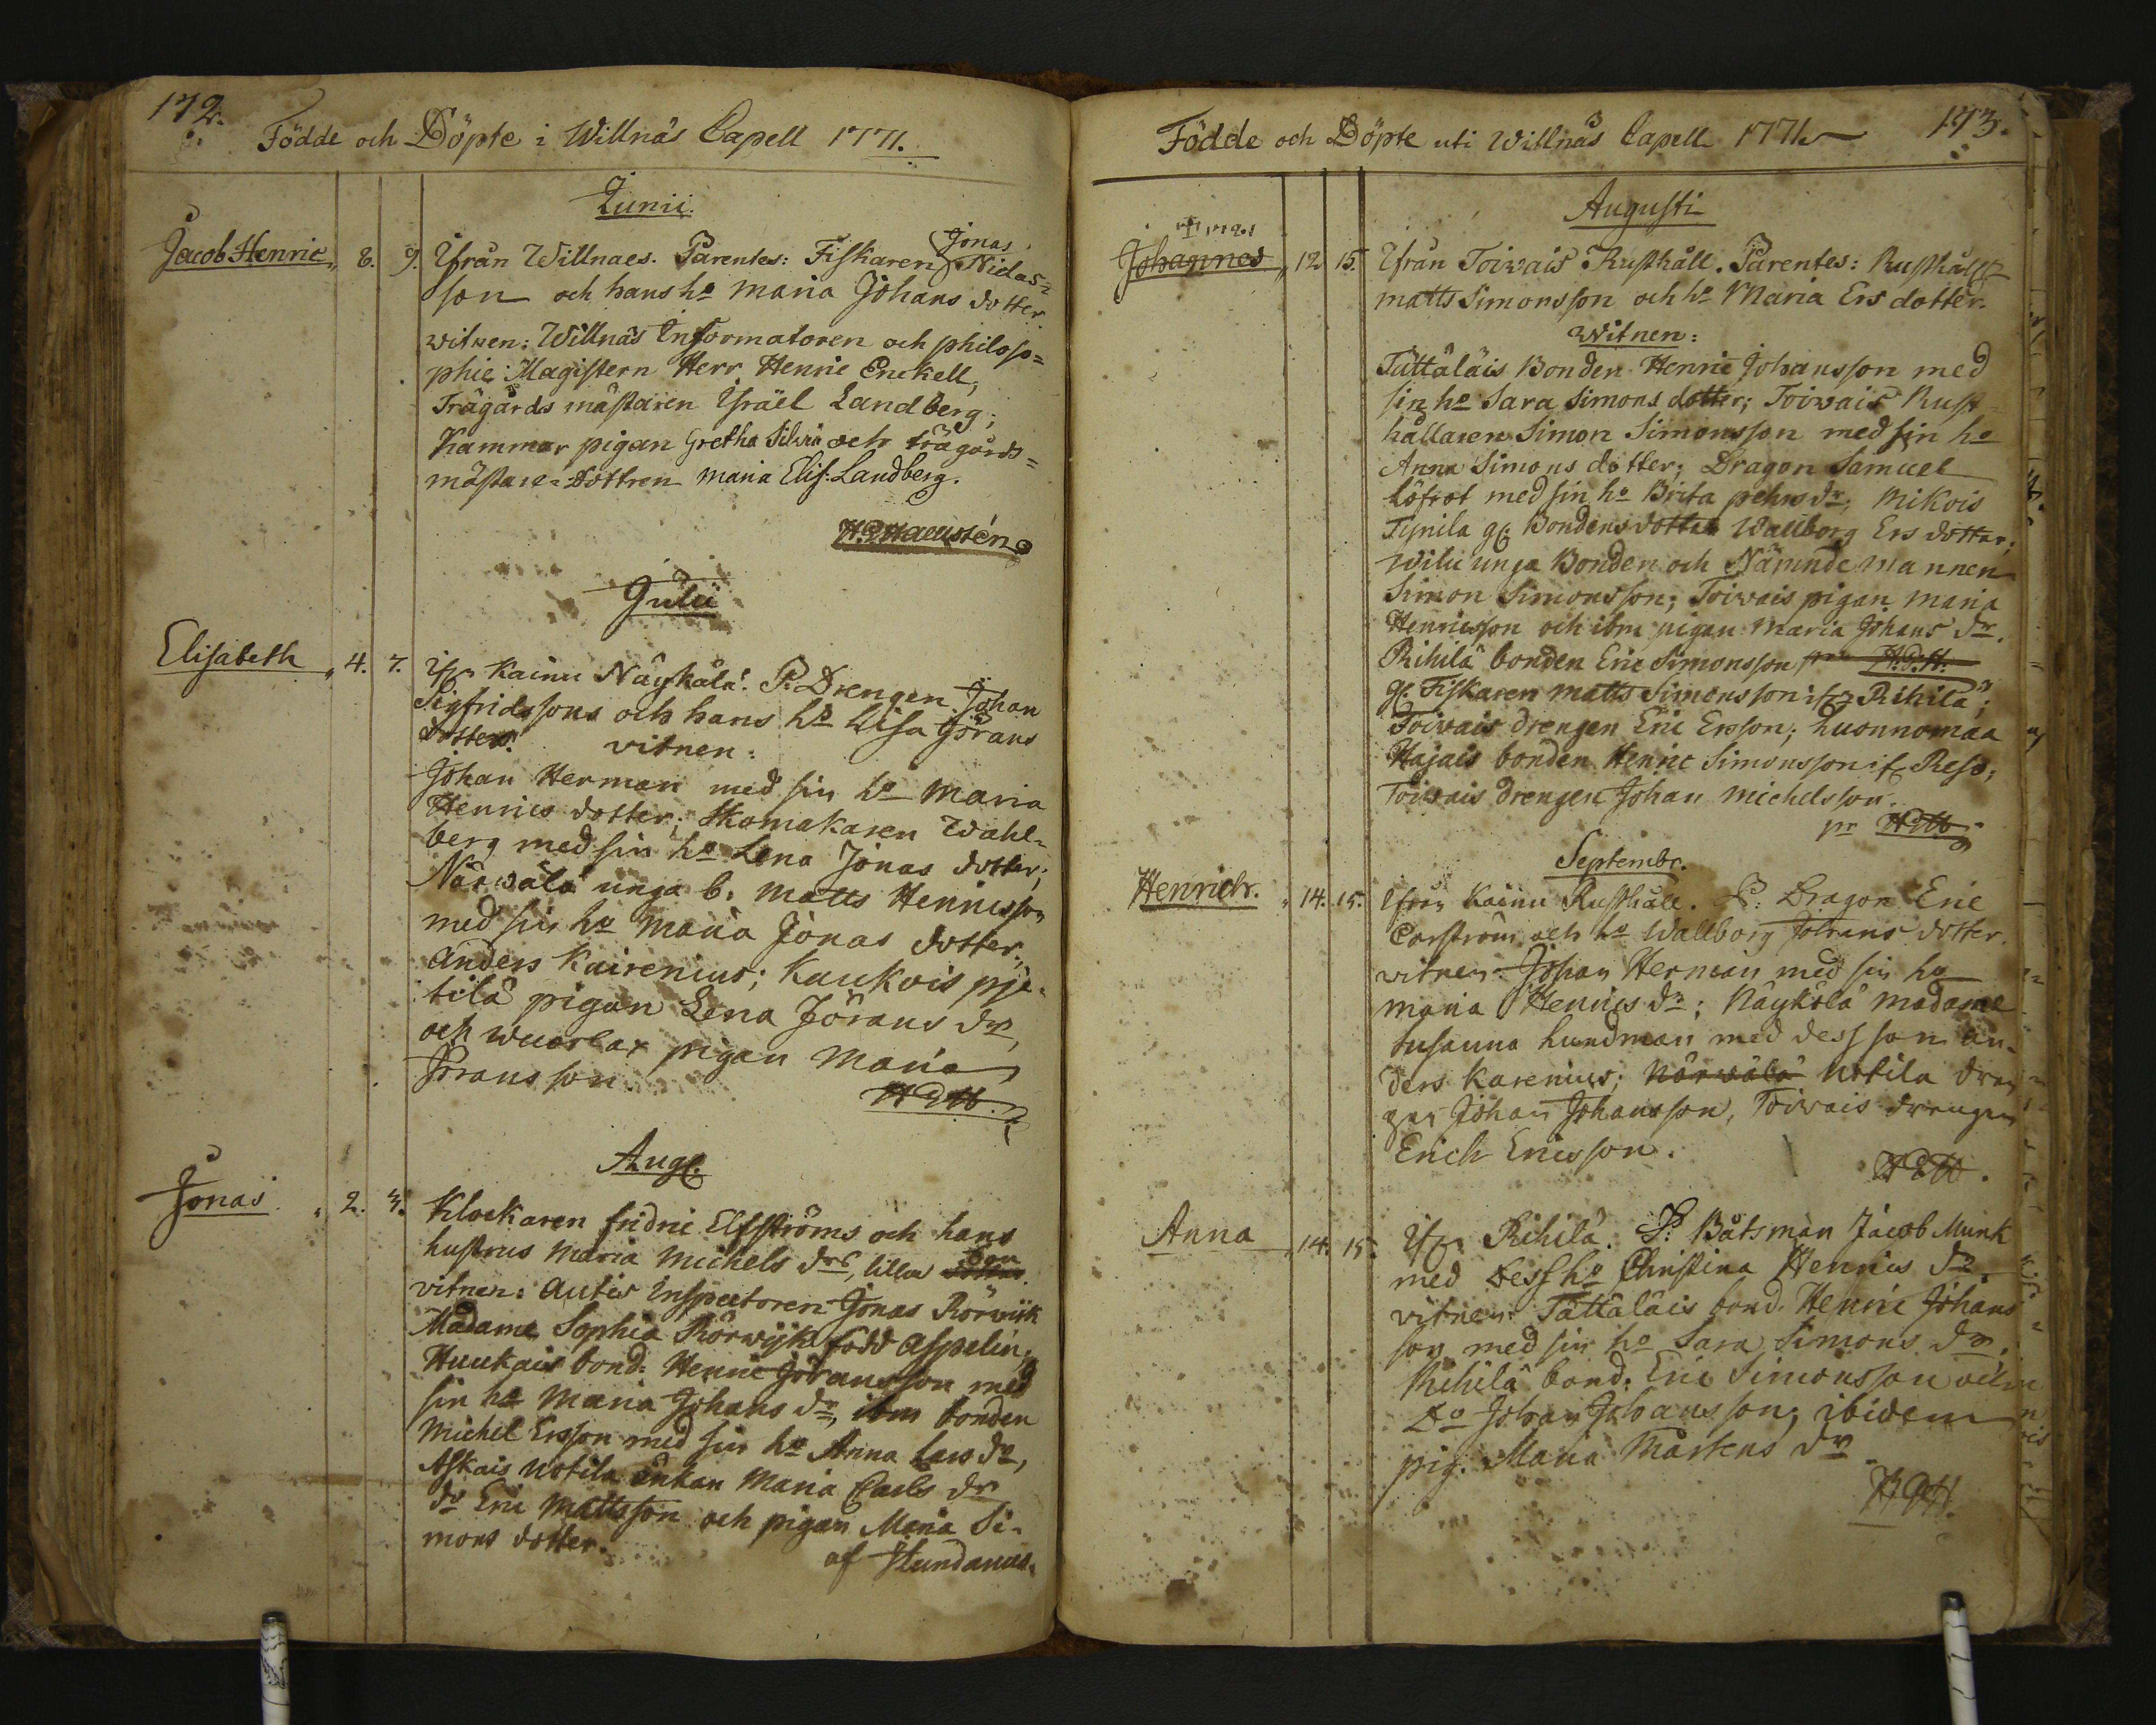 172.
Födde och Döpte i Willnäs Capell 1771.
Junii.
Jacob Henric „ 8. 9. Ifrån Willnaes. Parentes: Fiskaren Jonas Niclas=
son och hans ho Maria Johans dotter.
witnen: Willnäs Informatoren och philoso=
phiæ Magistern Herr Henric Enckell,
Trägårds mästaren Israël Landberg;
Kammar pigan Gretha Silvia och trägårds=
mästare=Dottren Maria Elis: Landberg.
H.D. Wallustén
Julii
Elisabeth „ 4. 7. ifr. Kainu Näykälä. P. Drengen Johan
Sigfridssons och hans ho Lisa Görans
dotter. vitnen:
Johan Herman med sin ho Maria
Henrics dotter; Skomakaren Wahl-
berg med sin ho Lena Jonas dotter;
Närwälä unga b. Matts Henricsson
med sin ho Maria Jonas dotter;
Anders Kairenius; Kaukois pje-
tilä pigan Lena Jörans dr,
och Wuorlax pigan Maria
Jöransson.
HDW.
Aug.
Jonas „ 2. 3. Klockaren fridric Elfströms och hans
hustrus Maria Michels drs, lilla son
vitnen: Autis Inspectoren Jonas Rörwijk
Madame Sophia Rörwijk född Aspelin;
Huukais bond: Henric Jöransson med
sin ho Maria Johans dr, ibm bonden
Michel Ersson med sin ho Anna Lars dr,
Askais Notila änkan Maria Carls dr
do Eric Mattsson och pigan Maria Si-
mons dotter.
af

Födde och Döpte uti Willnäs Capell 1771 173.
Augusti
Johannes „ 12 15. Ifrån Toiwais Rusthåll. Parentes: Rusthåll
matts Simonsson och ho Maria Ers dotter.
Witnen:
Tättäläis Bonden Henric Johansson med
sin ho Sara Simons dotter; Toiwais Rust
hållaren Simon Simonsson med sin ho
Anna Simons dotter; Dragon Samuel
Löfrot med sin ho Brita pehrs dr; Mikois
Tynila gl. Bondens dotter Wallborg Ers dotter;
Wilu unga Bonden och Nämnde mannen
Simon Simonsson; Toiwais pigan Maria
Henricsson och ibm pigan Maria Johans dr.
Rihilä bonden Eric Simonsson H.D.H.
gl. Fiskaren matts Simonsson ifr. Rihilä;
Toiwais drengen Eric Ersson; Luonnomaa
Hajais bonden Henric Simonsson if. Reso;
Toiwais drengen Johan Michelsson.
pr HDW
Septembr.
Henrich. „ 14. 15. Ifrån Kainu Rusthåll. P: Dragon Eric
och ho Wallborg Johans dotter.
vitnen: Johan Herman med sin ho
maria Henrics dr; Näykälä madame
Susanna Lundman med dess son An-
ders Karenius; Närwälä Notila dren
gen Johan Johansson, Toiwais drengen
Erich Ericsson.
HDW.
Anna „ 14. 15. Ifr. Rihilä. P: Båtsman Jacob Munk
med dess ho Christina Henrics dr.
vitnen Tättäläis bond. Henric Johans
son med sin ho Sara Simons dr,
Rihilä bond: Eric Simonsson och
do Johan Johansson; ibidem
pig. Maria Mårtens dr
HDH.